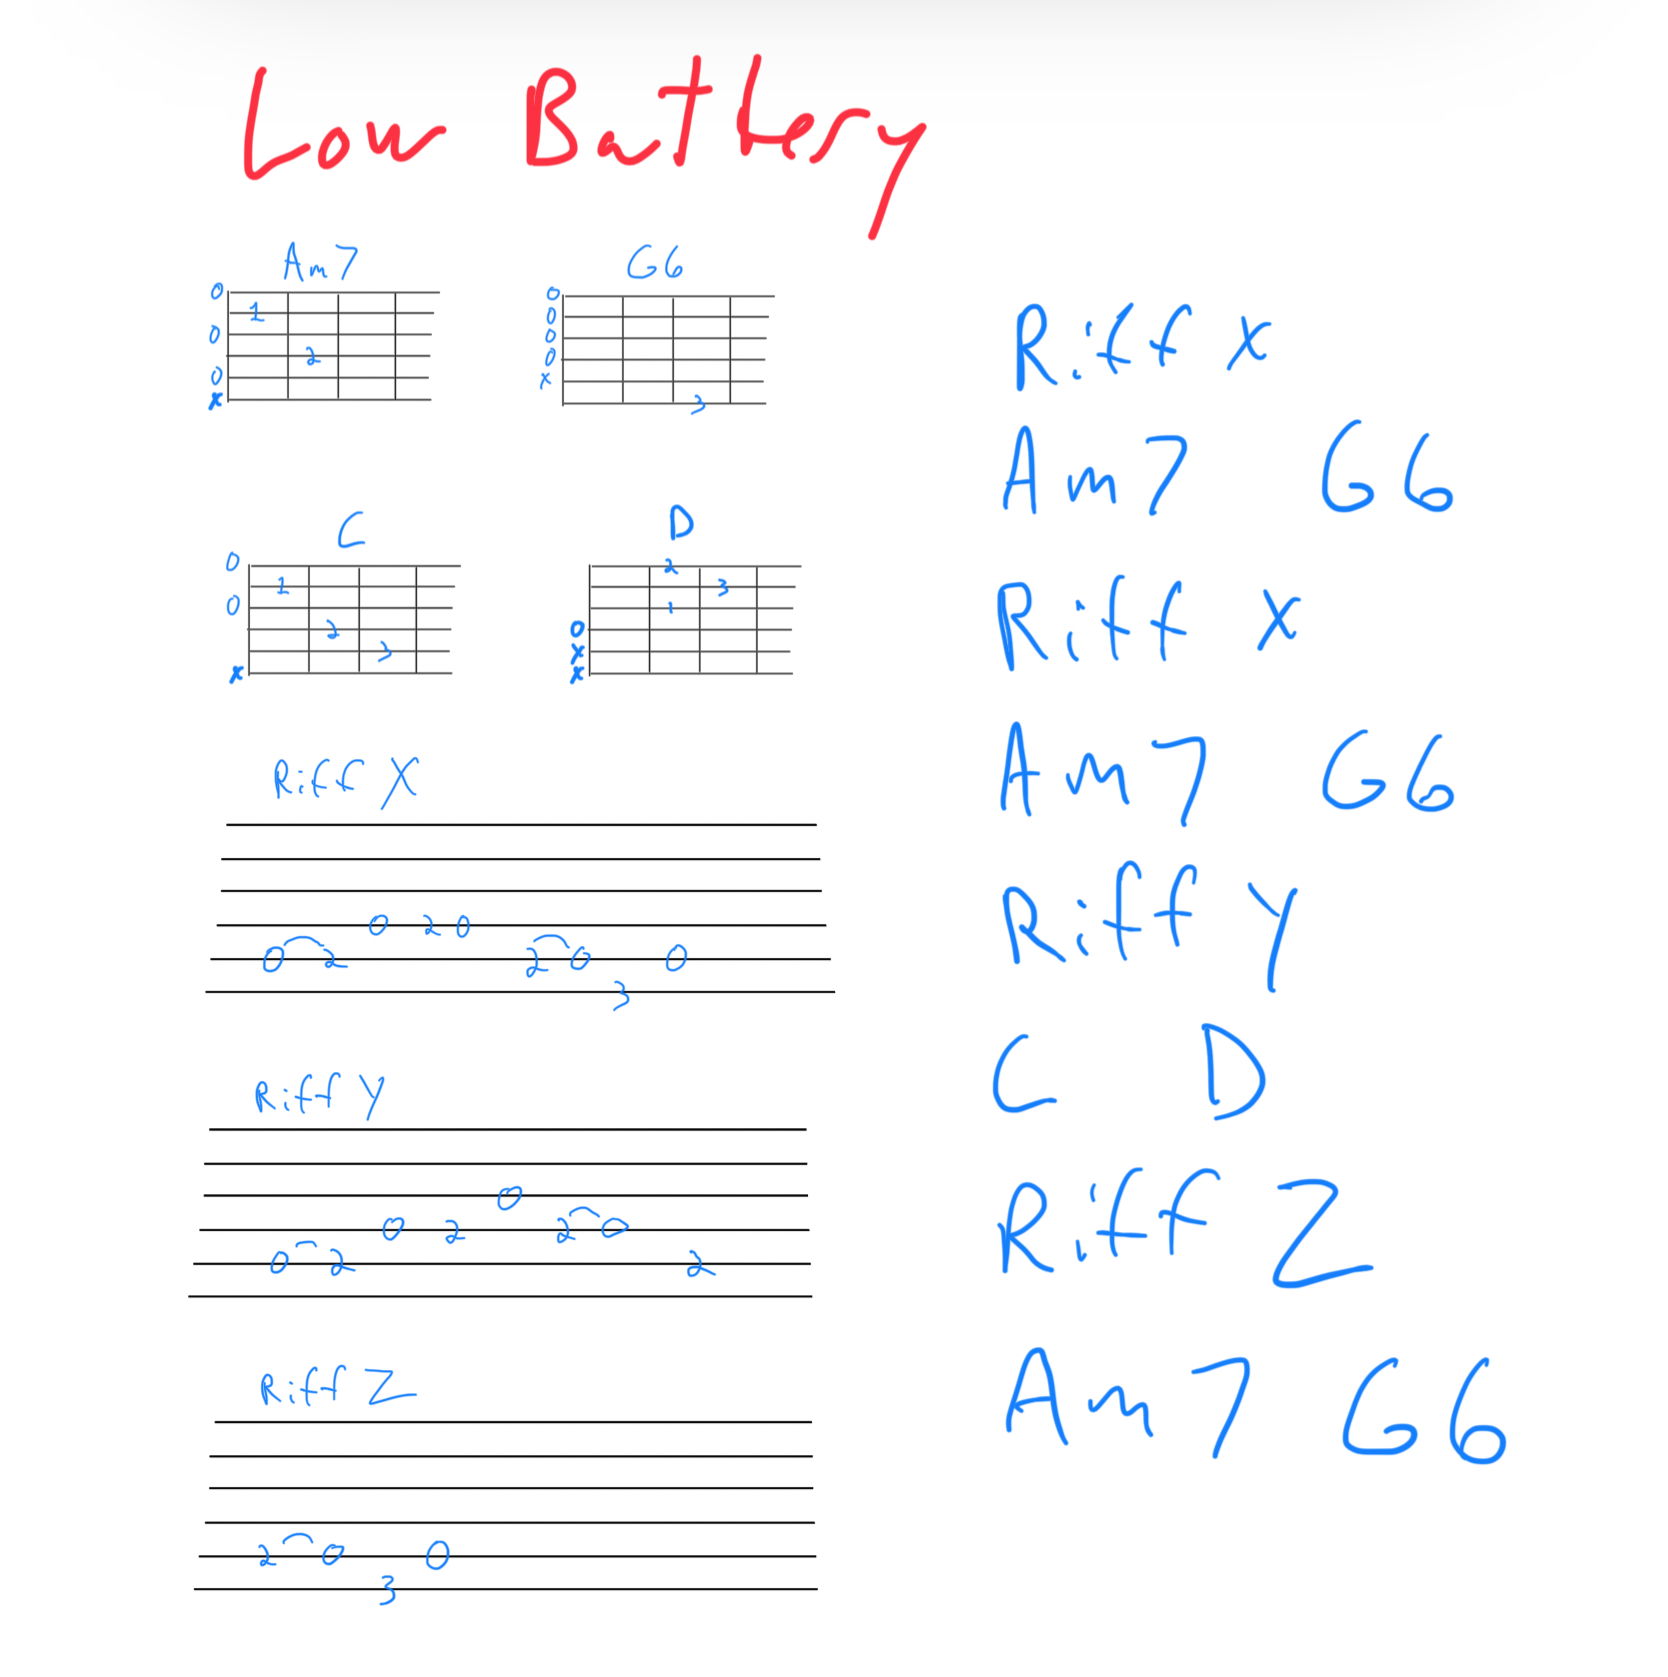 Low Battery
Am7
0
1
0
2
0
x
G6
0
0
0
0
x
3
C
0
1
0
2
3
x
D
2
3
1
0
x
x
Riff X
0 2 0
0 2 2 0 0
3
Riff Y
0
0 2 2 0
0 2 2
Riff Z
2 0 0
3
Riff X
Am7 G6
Riff X
Am7 G6
Riff Y
C D
Riff Z
Am7 G6